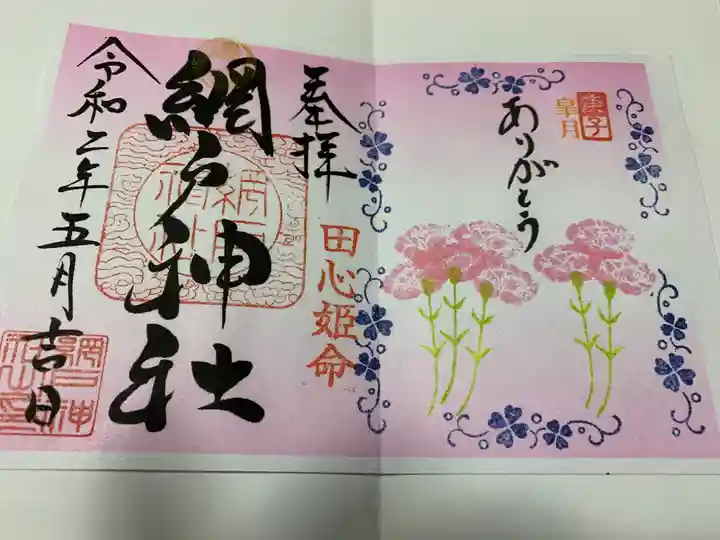 庚子
皐月
ありがとう
奉拝
田心姫命
網戸神社
令和二年五月吉日